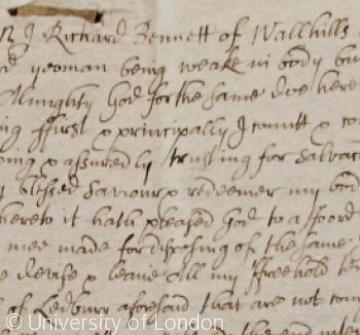 I Richard Bennett of Wallhills
yeoman being weake in body bu
Almighty God for the same doe here
ing ffirst & principally I comitt & co
& assuredly trusting for salvac
blessed Saviour & redeemer my bod
hereto it hath pleased God to afoord
mee made for disposing of the same
devise & leave All my ffreehold
of Ledbury aforesaid that are not
© University of London